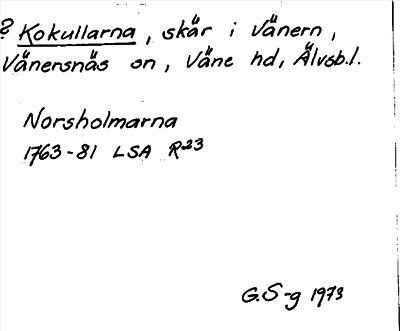 ? Kokullarna, skär i Vänern,
Vänersnäs sn, Väne hd, Älvsb.l.
Norsholmarna
1763-81 LSA R23
G.S-g 1973